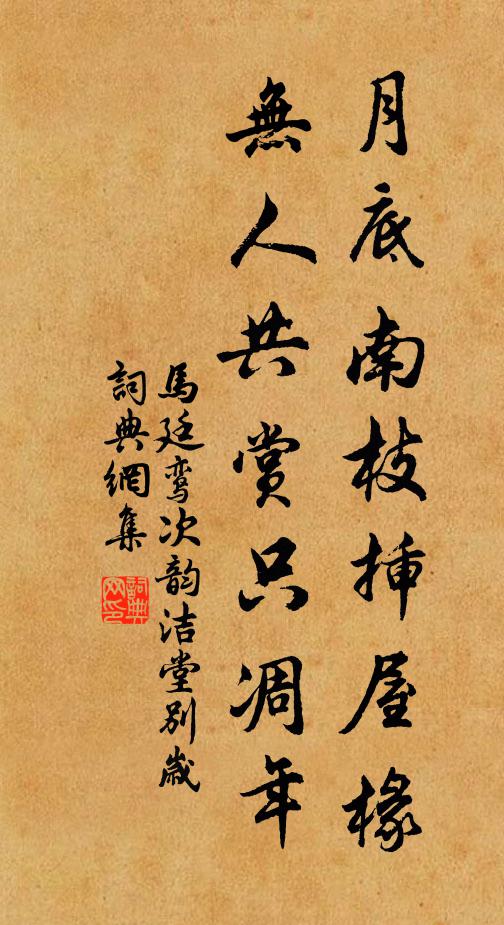 月底南枝插屋椽
無人共賞只凋年
馬廷鸾次韵洁堂别歲
詞典網集
詞典網印